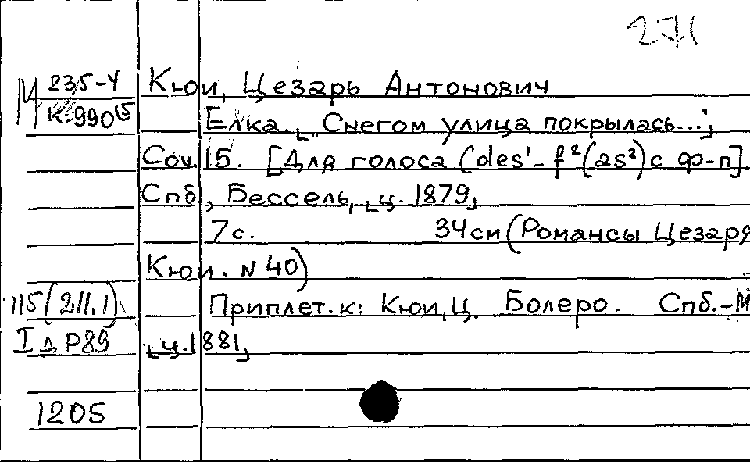 271
М 23,5-4 Кюи, Цезарь Антонович
К-990 15 Елка. „Снегом улица покрылась...";
Соч. 15. [Для голоса (des¹-f²(as²) с ф-п]
Спб, Бессель, ц. 1879,
7с. 34см (Романсы Цезаря
Кюи. N 40)
115(211.1) Приплет. к: Кюи, Ц. Болеро. Спб.-М
I д Р89 ц. 1881,
1205